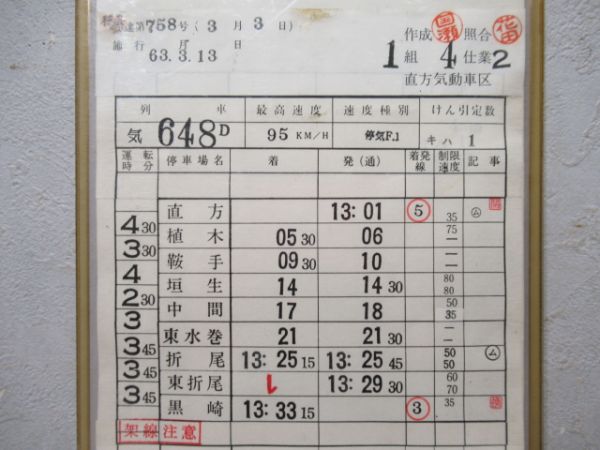 達第758号(3月3日)
施行 月 日
63.3.13
作成 広瀬 照合 花田
1組 4仕業 2
直方気動車区
列車 最高速度 速度種別 けん引定数
気 648D 95 KM/H 停気F.1 キハ 1
運転時分 停車場名 着 発(通) 着発線 制限速度 記事
直方 13:01 ⑤ 35 ㋰
430 植木 0530 06 75 —
330 鞍手 0930 10 — —
4 垣生 14 1430 80 80
230 中間 17 18 50 35
3 東水巻 21 2130 — —
345 折尾 13:2515 13:2545 50 50 ㋰
345 東折尾 レ 13:2930 60 70
345 黒崎 13:3315 ③ 35
架線注意